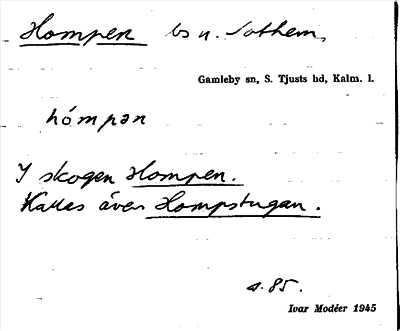 Hompen bs u. Sothem,
Gamleby sn, S. Tjusts hd, Kalm. l.
hómpən
I skogen Hompen.
Kallas även Hompstugan.
s. 85.
Ivar Modéer 1945